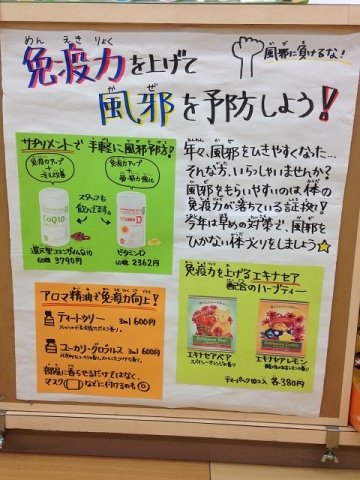 免疫力を上げて
めんえきりょく
風邪を予防しよう!
風邪に負けるな!
サプリメントで手軽に風邪予防!
免疫力アップ
+
免疫力アップ
+
スタッフも
飲んでます。
CoQ10
D
還元型コエンザイムQ10
60粒 3790円
ビタミンD
60粒 2362円
年々、風邪をひきやすくなった…
そんな方、いらっしゃいませんか?
風邪をもらいやすいのは体の
免疫力が落ちている証拠!!
今年は早めの対策で、風邪を
ひかない体づくりをしましょう☆
アロマ精油で免疫力向上!
ティートゥリー 3ml 600円
ユーカリ・グロブルス 3ml 600円
部屋に香らせるだけではなく、
マスクなどに付けるのも◎
免疫力を上げるエキナセア
配合のハーブティー
エキナセアベア
エキナセアレモン
ティーバッグ10コ入 各380円